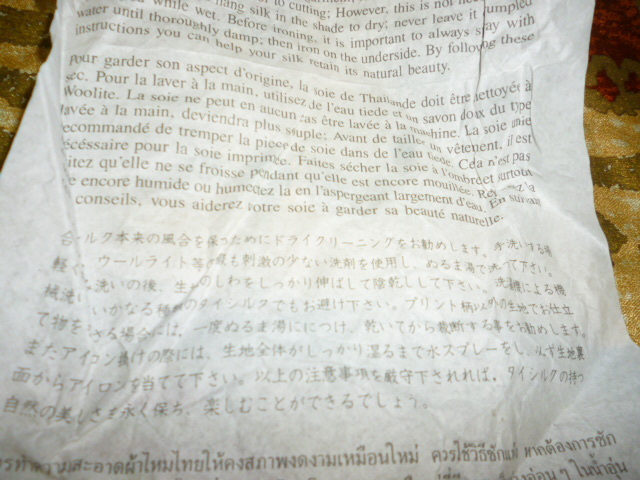 to cutting; However, this is not
hang silk in the shade to dry; never leave it jumpled
while wet. Before ironing, it is important to always stay with
water until thoroughly damp; then iron on the underside. By following these
instructions you can help your silk retain its natural beauty.
Pour garder son aspect d'origine, la soie de Thaïlande doit être nettoyée à
sec. Pour la laver à la main, utilisez de l'eau tiede et un savon doux du type
Woolite. La soie ne peut en aucun cas être lavée à la machine. La soie unie
lavée à la main, deviendra plus souple; Avant de tailler un vêtement, il est
recommandé de tremper la piece de soie dans de l'eau tiede. Cea n'est pas
nécéssaire pour la soie imprimée. Faites sécher la soie à l'ombre et surtout
évitez qu'elle ne se froisse pendant qu'elle est encore mouillée.
encore humide ou humedez la en l'aspergeant largement d'eau. En suivant
conseils, vous aiderez votre soie à garder sa beauté naturelle.
シルク本来の風合を保つためにドライクリーニングをお勧めします。水洗いする時
軽く、ウールライト等の最も刺激の少ない洗剤を使用し、ぬるま湯で洗って下さい。
洗いの後、生地のしわをしっかり伸ばして陰乾しして下さい。洗濯機による機
械洗いはいかなる種類のタイシルクでもお避け下さい。プリント柄以外の生地でお仕立
て物をする場合には、一度ぬるま湯ににつけ、乾いてから裁断する事をお勧めします。
またアイロン掛けの際には、生地全体がしっかり湿るまで水スプレーをし、必ず生地裏
面からアイロンを当てて下さい。以上の注意事項を厳守下されれば、タイシルクの持つ
自然の美しさを永く保ち、楽しむことができるでしょう。
การทำความสะอาดผ้าไหมไทยให้คงสภาพงดงามเหมือนใหม่ ควรใช้วิธีซักแห้ง หากต้องการซัก
อ่อนๆ ในน้ำอุ่น